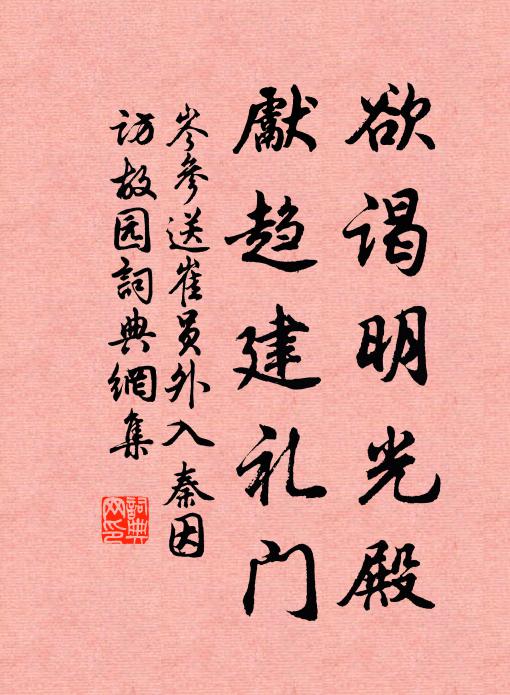 欲谒明光殿
獻趋建礼门
岑參送崔员外入秦因
访故园詞典網集
詞典网印